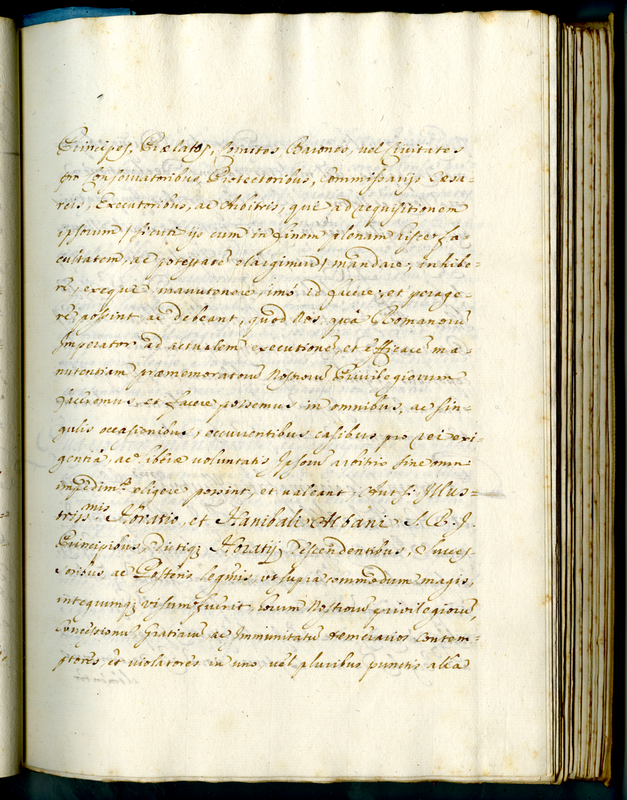 Principes, Prælatos, Comites, Barones, vel Civitates
pro Conservatoribus, Protectoribus, Commissarijs Cesa=
reis, Executoribus, ac Arbitris, qui ad requisitionem
ipsorum/ sicuti ijs cum in finem plenam licet fa=
cultatem, ac potestatē elargimur/ mandare, inhibe=
re, exequi manutenere, imò id facere, et perage=
rè possint ac debeant, quod Nos quà Romanorū
Imperator ad actualem executionē, et efficacē ma=
nutentiam præmemoratorū Nostrorū Privilegiorum
faceremus, et facere possemus in omnibus, ac sin=
gulis occasionibus, occurrentibus casibus, pro rei exi=
gentiâ, ac liberæ voluntatis Ipsorū arbitrio sine omni
impedim.to eligere possint, et valeant. Aut si Illus=
triss.mis Horatio, et Hanibali Albani S. R. J.
Principibus, dictiq; Horatij, Descendentibus, Succes=
soribus ac Posteris legmis, ut supra commodum magis,
integrumq; visum fuerit, horum Nostrorū privilegiorū,
Concessionū Gratiarū ac Immunitatū temerarios Contem=
ptores, et violatores in uno, vel pluribus punctis alla